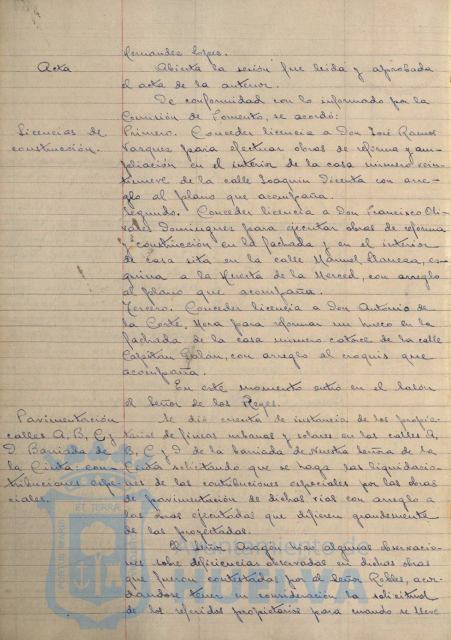 Hernandez Lopez.
Acta
Abierta la sesión fue leida y aprobada
el acta de la anterior.
De conformidad con lo informado por la
Comisión de Fomento, se acordó:
Licencias de
construcción.
Primero. Conceder licencia a Don José Ramos
Vazquez para efectuar obras de reforma y am-
pliación en el interior de la casa número vein-
tinueve de la calle Joaquin Dicenta con arre-
glo al plano que acompaña.
Segundo. Conceder licencia a Don Francisco Oli-
vares Dominguez para ejecutar obras de reforma
y construcción en la fachada y en el interior
de casa sita en la calle Manuel, es-
quina a la Huerta de la Merced, con arreglo
al plano que acompaña.
Tercero. Conceder licencia a Don Antonio de
la Corte Mora para reformar un hueco en la
fachada de la casa número catorce de la calle
Capitán Galan, con arreglo al croquis que
acompaña.
En este momento entró en el Salon
el Señor de los Reyes.
Pavimentación
calles A, B, C y
D Barriada de
la Cinta: con-
tribuciones espe-
ciales.
Se dió cuenta de instancia de los propie-
tarios de fincas urbanas y solares en las calles A,
B, C y D de la barriada de Nuestra Señora de la
Cinta solicitando que se haga las liquidacio-
nes de las contribuciones especiales por las obras
de pavimentación de dichas vias con arreglo a
las obras ejecutadas que difieren grandemente
de las proyectadas.
El Señor Aragón hizo algunas observacio-
nes sobre deficiencias observadas en dichas obras
que fueron contestadas por el Señor Robles, acor-
dandose tener en consideración la solicitud
de los referidos propietarios para cuando se lleve
Ayuntamiento de
HUELVA